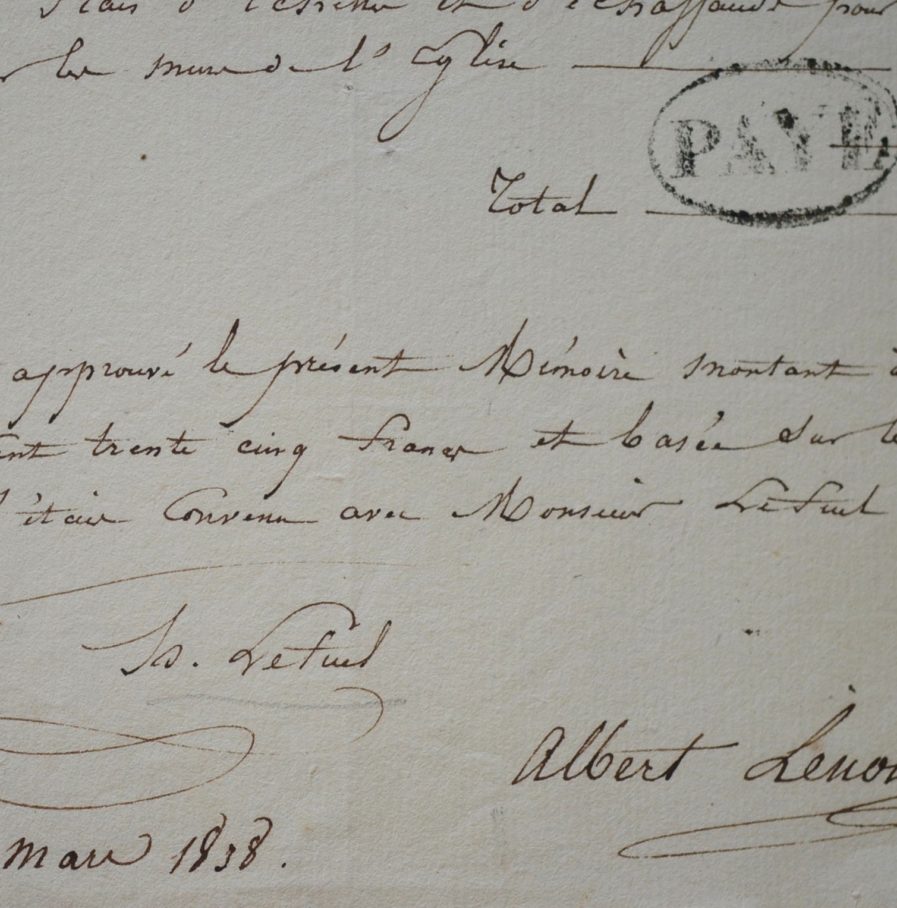 frais d'échelle et d'échaffaude pour
les murs de l'Eglise
PAYÉ
Total
approuvé le présent Mémoire montant à
cent trente cinq francs et basée sur le
était Convenu avec Monsieur Lefuel
h. Lefuel
Albert Lenoi
mars 1838.